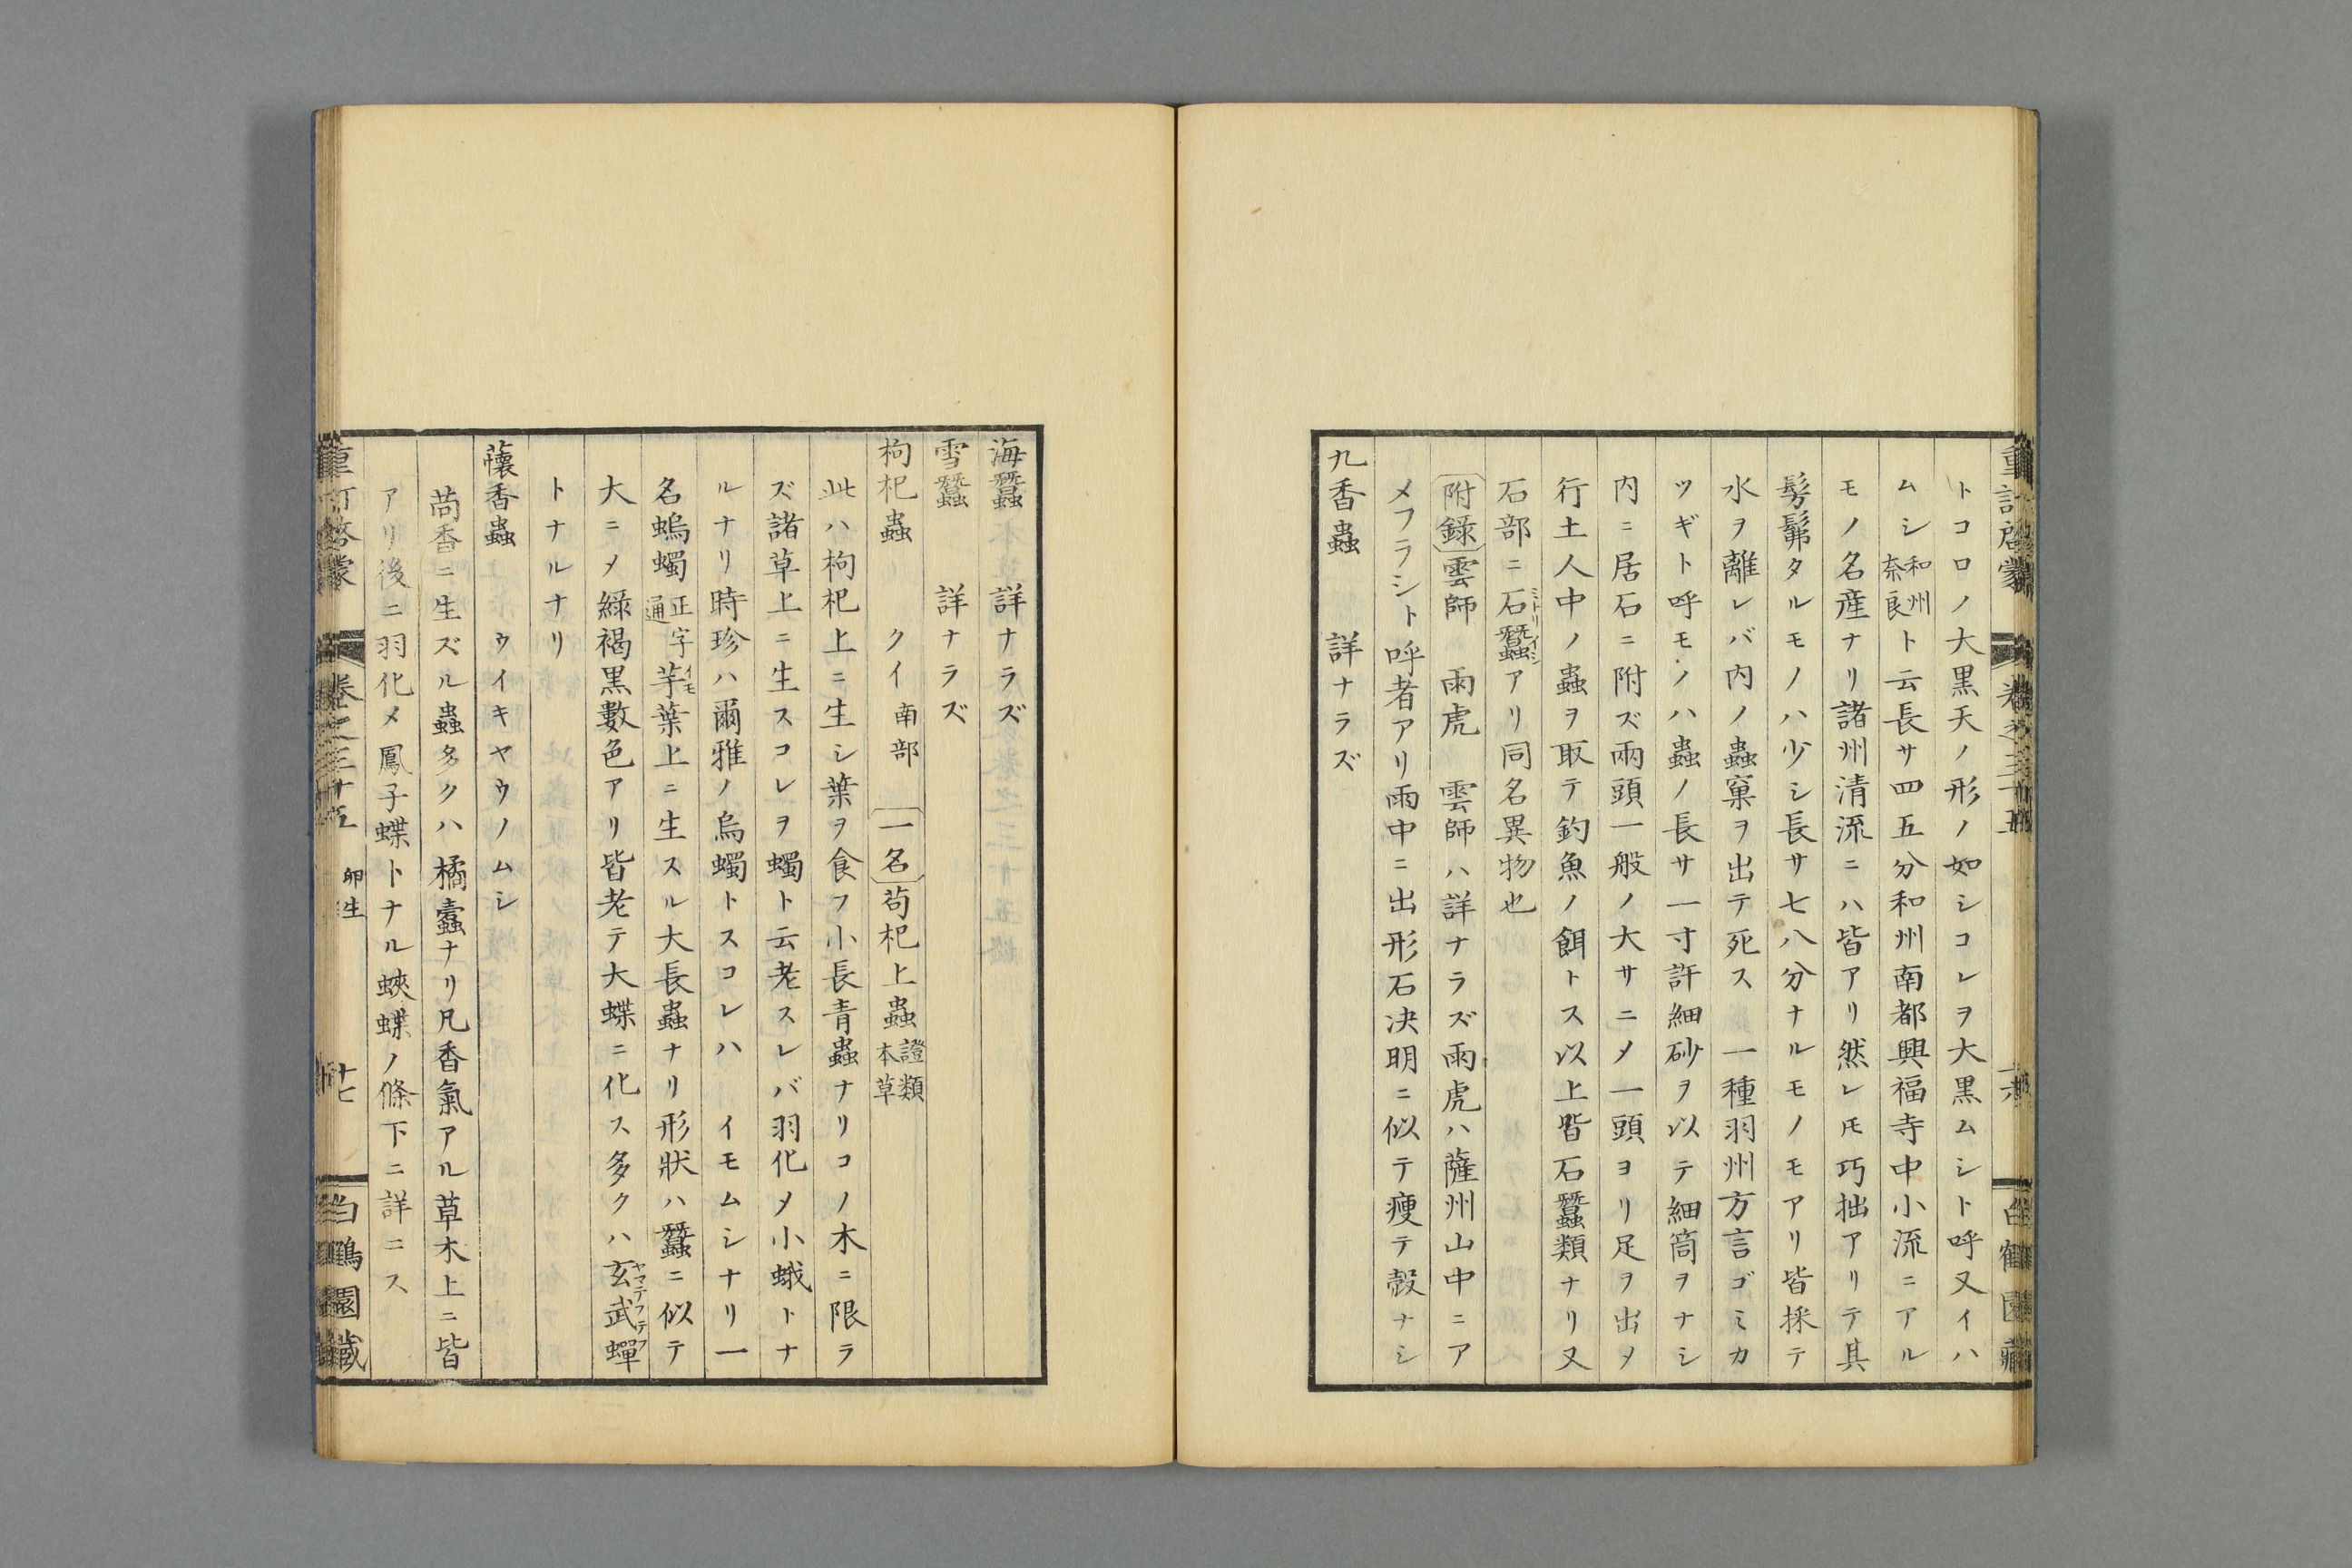 トコロノ大黒天ノ形ノ如シコレヲ大黒ムシト呼又イハ
ムシ和州奈良ト云長サ四五分和州南都興福寺中小流ニアル
モノ名産ナリ諸州清流ニハ皆アリ然レ𪜈巧拙アリテ其
髣髴タルモノハ少シ長サ七八分ナルモノモアリ皆採テ
水ヲ離レバ内ノ蟲窠ヲ出テ死ス 一種羽州方言ゴミカ
ツギト呼モノハ蟲ノ長サ一寸許細砂ヲ以テ細筒ヲナシ
内ニ居石ニ附ズ兩頭一般ノ大サニメ一頭ヨリ足ヲ出メ
行土人中ノ蟲ヲ取テ釣魚ノ餌トス以上皆石蠶類ナリ又
石部ニ石蠶アリ同名異物也
附錄 雲師 雨虎 雲師ハ詳ナラズ雨虎ハ薩州山中ニア
メフラシト呼者アリ雨中ニ出形石决明ニ似テ瘦テ殻ナシ
九香蟲 詳ナラズ
海蠶 詳ナラズ
雪蠶 詳ナラズ
枸杞蟲 クイ南部 一名 苟杞上蟲證類本草
此ハ枸杞上ニ生シ葉ヲ食フ小長青蟲ナリコノ木ニ限ラ
ズ諸草上ニ生スコレヲ蠋ト云老スレバ羽化メ小蛾トナ
ルナリ時珍ハ爾雅ノ烏蠋トスコレハ イモムシナリ一
名螐蠋正字通芋葉上ニ生スル大長蟲ナリ形狀ハ蠶ニ似テ
大ニメ綠褐黒數色アリ皆老テ大蝶ニ化ス多クハ玄武蟬
トナルナリ
蘹香蟲 ウイキヤウノムシ
茴香ニ生ズル蟲多クハ橘蠹ナリ凡香氣アル草木上ニ皆
アリ後ニ羽化メ鳳子蝶トナル蛺蝶ノ條下ニ詳ニス
卷之三十五 卵生 十七